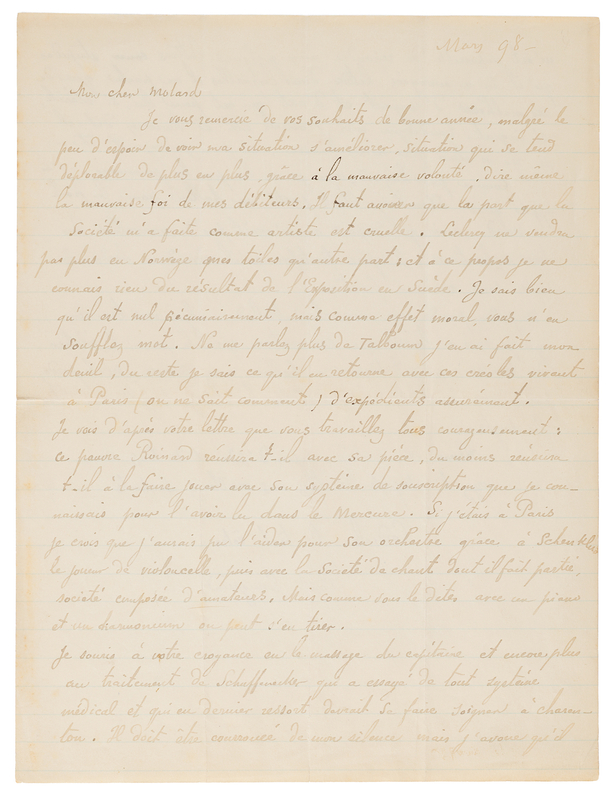 Mars 98 -
Mon cher Molard
Je vous remercie de vos souhaits de bonne année, malgré le
peu d'espoir de voir ma situation s'améliorer, situation qui se tend
déplorable de plus en plus, grâce à la mauvaise volonté, dire même
la mauvaise foi de mes débiteurs. Il faut avouer que la part que la
Société m'a faite comme artiste est cruelle. Leclerq ne vendra
pas plus en Norwège mes toiles qu'autre part; et à ce propos je ne
connais rien du résultat de l'Exposition en Suède. Je sais bien
qu'il est nul pécuniairement, mais comme effet moral, vous n'en
soufflez mot. Ne me parlez plus de Talboum j'en ai fait mon
deuil, du reste je sais ce qu'il en retourne avec ces créoles vivant
à Paris (on ne sait comment) d'expédients assurément.
Je vois d'après votre lettre que vous travaillez tous courageusement:
ce pauvre Roinard réussira t-il avec sa pièce, du moins réussira
t-il à la faire jouer avec son système de souscription que je con-
naissais pour l'avoir lu dans le Mercure. Si j'étais à Paris
je crois que j'aurais pu l'aider pour son orchestre grâce à Schenklud
le joueur de violoncelle, puis avec la Société de chant dont il fait partie,
société composée d'amateurs. Mais comme vous le dites avec un piano
et un harmonium on peut s'en tirer.
Je souris à votre croyance en le massage du capitaine et encore plus
au traitement de Schuffenecker qui a essayé de tout système
médical et qui en dernier ressort devrait se faire soigner à charen-
ton. Il doit être courroucé de mon silence mais j'avoue qu'il